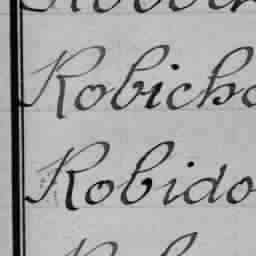 Robicho
Robido